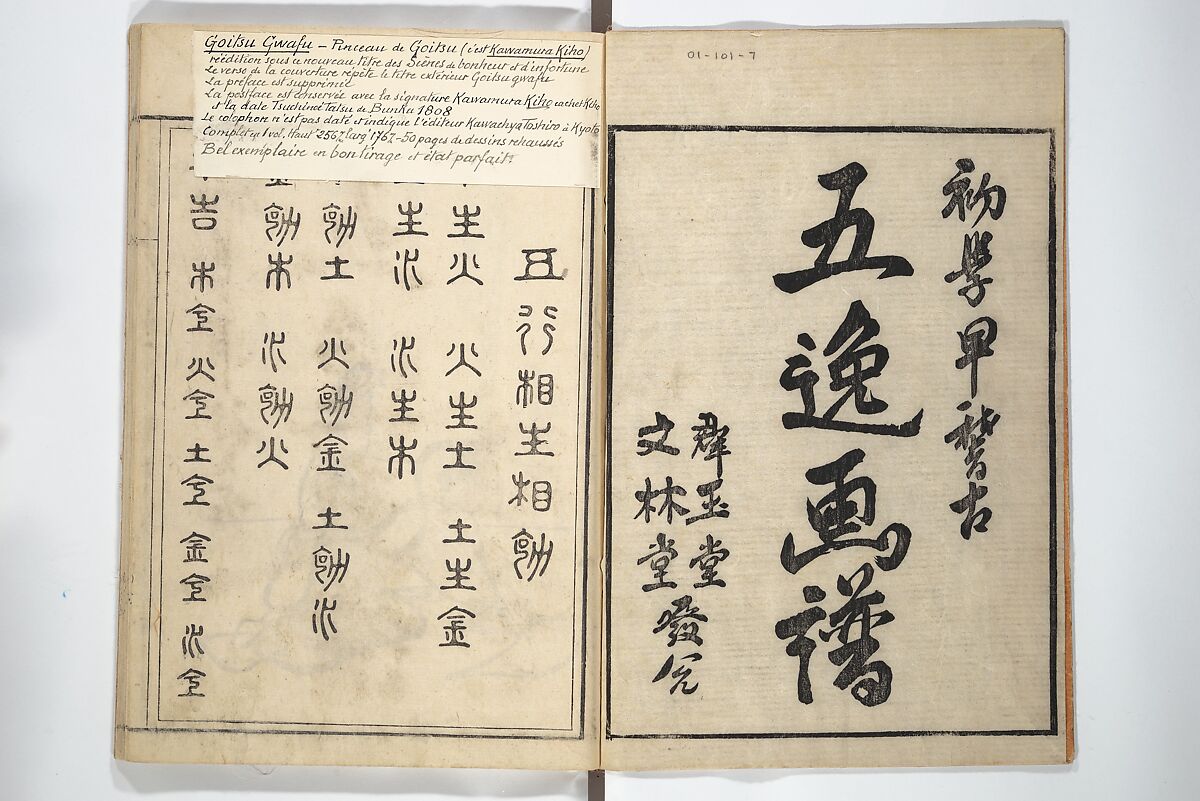 01-101-7
初學早稽古
五逸画譜
群玉堂
文林堂
發兌
Goitsu Gwafu – Pinceau de Goitsu (c'est Kawamura Kiho)
réédition sous ce nouveau titre des Scènes de bonheur et d'infortune
Le verso de la couverture répète le titre extérieur Goitsu gwafu
La préface est supprimée
La postface est conservée avec la signature Kawamura Kiho cachet Kiho
et la date Tsuchinoé Tatsu de Bunkwa 1808
Le colophon n'est pas daté et indique l'éditeur Kawachya Toshiro à Kyoto
Complet en 1 vol. Haut 256 7/m larg 176 7/m – 50 pages de dessins rehaussés
Bel exemplaire en bon tirage et état parfait.
五行相生相剋
生火 火生土 土生金
生水 水生木
剋土 火剋金 土剋水
金剋木 水剋火
吉 木命 火命 土命 金命 水命